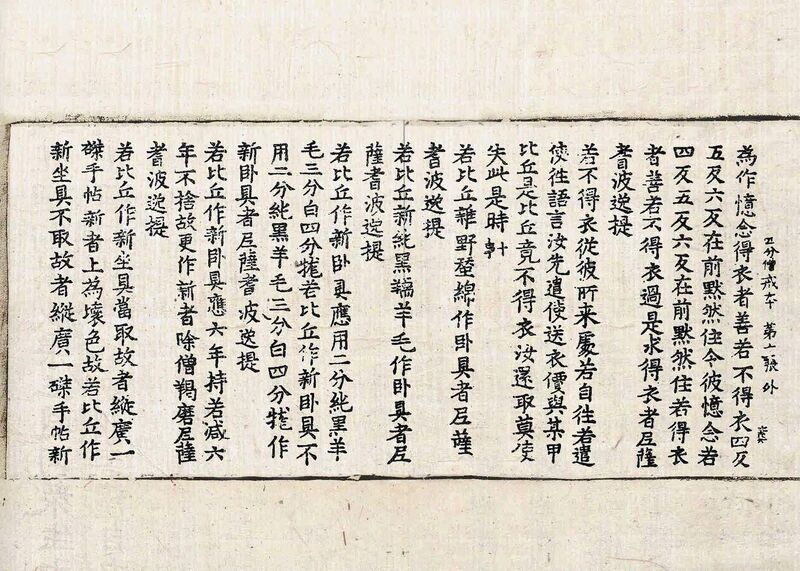 為作憶念得衣者善若不得衣四反
五反六反在前默然住令彼憶念若
四反五反六反在前默然住若得衣
者善若不得衣過是求得衣者尼薩
耆波逸提
若不得衣從彼所来處若自往若遣
使往語言汝先遣使送衣價與某甲
比丘是比丘竟不得衣汝還取莫使
失此是時
若比丘雜野蚕綿作卧具者尼薩
耆波逸提
若比丘新純黑羺羊毛作卧具者尼
薩耆波逸提
若比丘作新卧具應用二分純黑羊
毛三分白四分牻若比丘作新卧具不
用二分純黑羊毛三分白四分牻作
新卧具者尼薩耆波逸提
若比丘作新卧具應六年持若減六
年不捨故更作新者除僧羯磨尼薩
耆波逸提
若比丘作新坐具當取故者縱廣一
磔手帖新者上為壞色故若比丘作
新坐具不取故者縱廣一磔手帖新
五分僧戒本 第六張 外